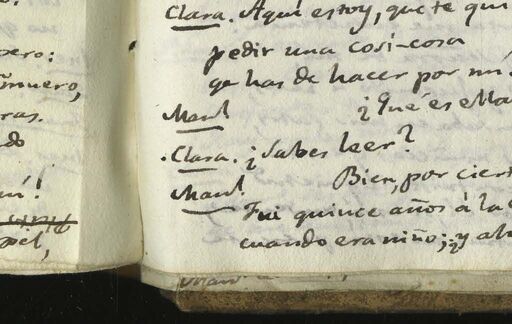 pero:
muero,
ras.
do
mí!
pel,
Clara. Aquí estoy, que te qui
pedir una cosi-cosa
qe has de hacer por mi.
Manl ¿Qué es ella
Clara. ¿Sabes leer?
Manl. Bien, por ciert
Fui quince años á la e
cuando era niño; ¿y ah
Manl